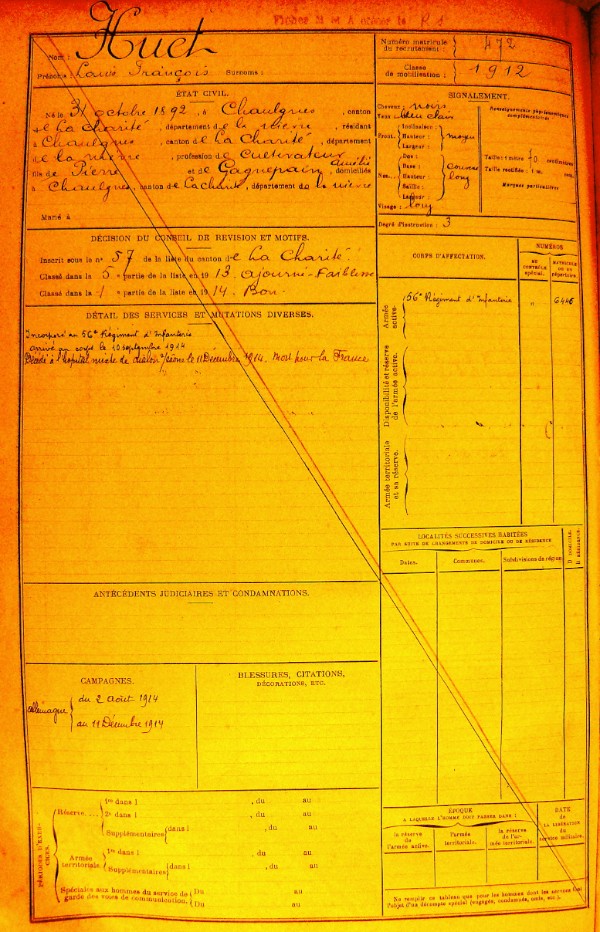 Fiches M et A créées le R 1
Huet
Nom :
Prénoms : Louis François Surnoms :
Numéro matricule du recrutement : 472
Classe de mobilisation : 1912
ÉTAT CIVIL.
Né le 31 octobre 1892, à Chaulgnes, canton
de La Charité, département de la Nièvre, résidant
à Chaulgnes, canton de La Charité, département
de la Nièvre, profession de Cultivateur
fils de Pierre et de Gagnepain, Amélie
à Chaulgnes, canton de La Charité, département de la Nièvre
Marié à
SIGNALEMENT.
Cheveux : noirs
Yeux : bleu clair
Front. Inclinaison :
Hauteur : moyen
Largeur :
Nez. Dos :
Base :
Hauteur : long
Saillie :
Largeur :
Visage : long
Renseignements physionomiques complémentaires :
Taille : 1 mètre 70 centimètres
Taille rectifiée : 1 m.
Marques particulières
Degré d'instruction : 3
DÉCISION DU CONSEIL DE REVISION ET MOTIFS.
Inscrit sous le n° 57 de la liste du canton de La Charité.
Classé dans la 5e partie de la liste en 1913. ajourné-Faiblesse
Classé dans la 1 e partie de la liste en 1914. Bon.
DÉTAIL DES SERVICES ET MUTATIONS DIVERSES.
Incorporé au 56e Régiment d'Infanterie
arrivé au corps le 10 septembre 1914
Décédé à l'hôpital mixte de Chalon s/Saône le 11 Décembre 1914. Mort pour la France
CORPS D'AFFECTATION.
NUMÉROS
AU CONTRÔLE SPÉCIAL.
MATRICULE OU DU RÉPERTOIRE.
Armée active.
56e Régiment d'Infanterie " 6446
Disponibilité et réserve de l'armée active.
Armée territoriale et sa réserve.
LOCALITÉS SUCCESSIVES HABITÉES
PAR SUITE DE CHANGEMENTS DE DOMICILE OU DE RÉSIDENCE
Dates. Communes. Subdivisions de région D. DOMICILE. R. RÉSIDENCE.
ANTÉCÉDENTS JUDICIAIRES ET CONDAMNATIONS.
CAMPAGNES.
Allemagne
du 2 Août 1914
au 11 Décembre 1914
BLESSURES, CITATIONS,
DÉCORATIONS, ETC.
PÉRIODES D'EXERCICES.
Réserve....
1re dans l , du au
2e dans l , du au
Supplémentaires dans l , du au
Armée territoriale.
1re dans l , du au
Supplémentaires dans l , du au
Spéciales aux hommes du service de garde des voies de communication.
Du au
Du au
ÉPOQUE
À LAQUELLE L'HOMME DOIT PASSER DANS :
la réserve de l'armée active.
l'armée territoriale.
la réserve de l'armée territoriale.
DATE
de
LA LIBÉRATION
du
service militaire.
Ne remplir ce tableau que pour les hommes dont les services font
l'objet d'un décompte spécial (engagés, condamnés, omis, etc.).